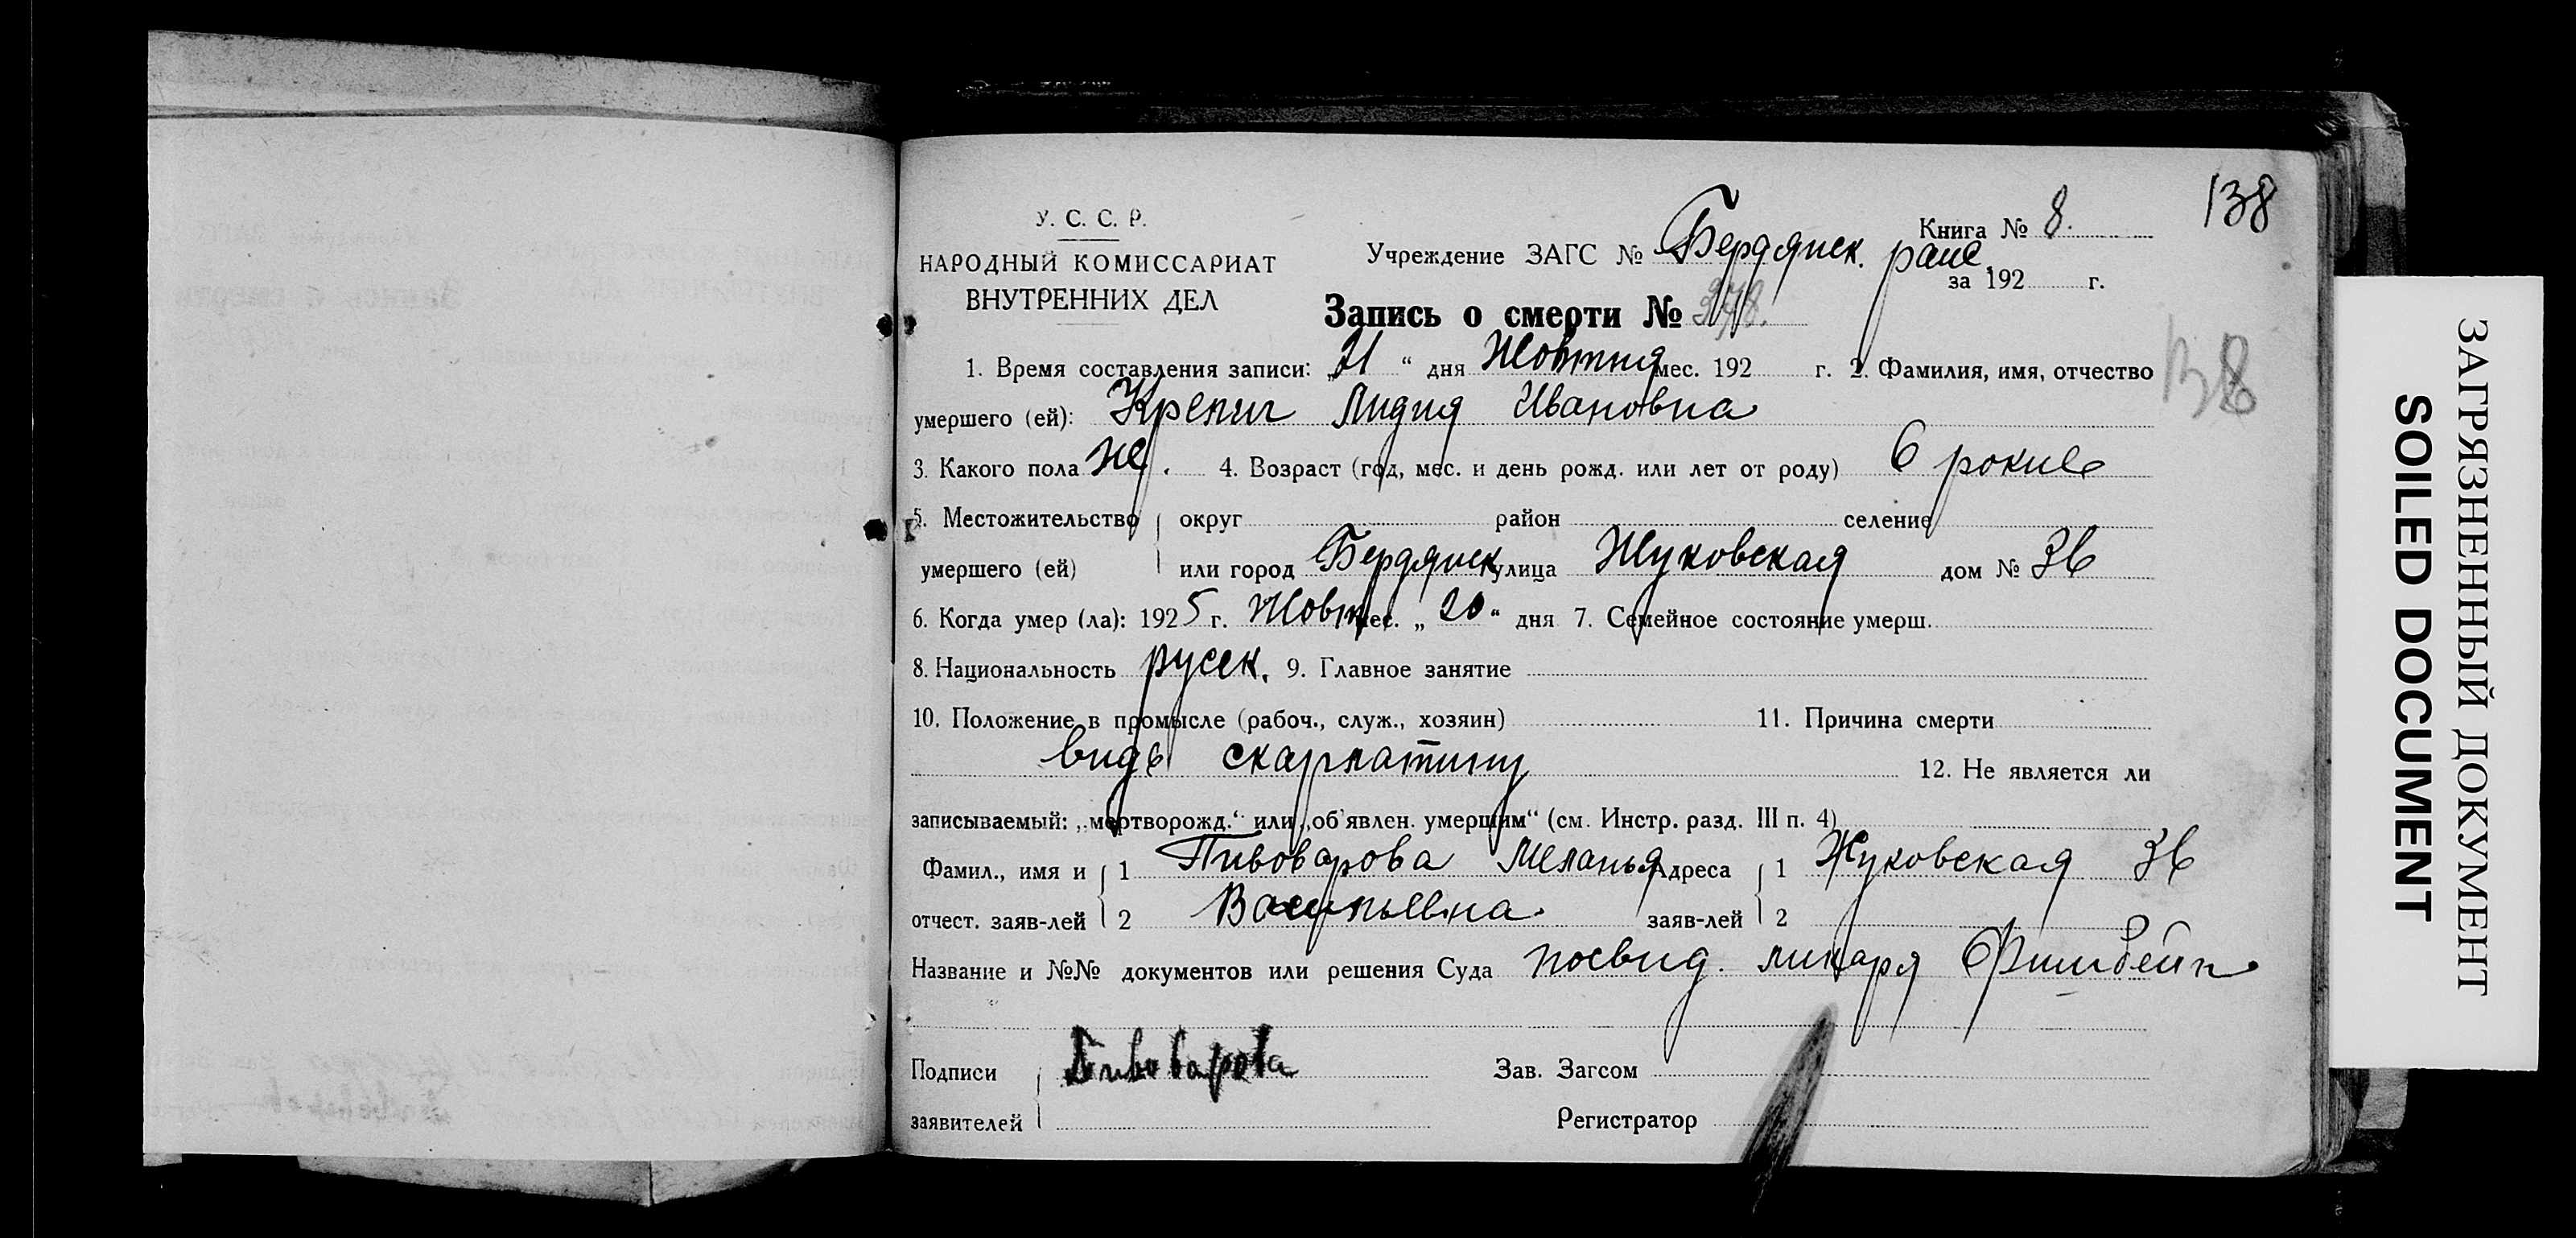 138
У. С. С. Р.
НАРОДНЫЙ КОМИССАРИАТ
ВНУТРЕННИХ ДЕЛ
Книга № 8.
Учреждение ЗАГС № Бердянск. райс.
за 192 г.
Запись о смерти № 378.
138
1. Время составления записи: „21 “ дня Жовтня мес. 192 г. 2. Фамилия, имя, отчество
умершего (ей): Лидия Ивановна
3. Какого пола ж. 4. Возраст (год, мес. и день рожд. или лет от роду) 6 років
5. Местожительство округ район селение
умершего (ей) или город Бердянск улица Жуковская дом № 36
6. Когда умер (ла): 1925 г. Жовт. мес. „ 20 “ дня 7. Семейное состояние умерш.
8. Национальность русск. 9. Главное занятие
10. Положение в промысле (рабоч., служ., хозяин) 11. Причина смерти
видь скарлатини 12. Не является ли
записываемый: „мертворожд.“ или „об'явлен. умершим“ (см. Инстр. разд. III п. 4)
Фамил., имя и 1 Пивоварова Меланья Адреса 1 Жуковская 36
отчест. заяв-лей 2 Васильевна. заяв-лей 2
Название и №№ документов или решения Суда посвид.ликаря Фишбейн
Подписи Пивоварова Зав. Загсом
заявителей Регистратор
ЗАГРЯЗНЕННЫЙ ДОКУМЕНТ
SOILED DOCUMENT